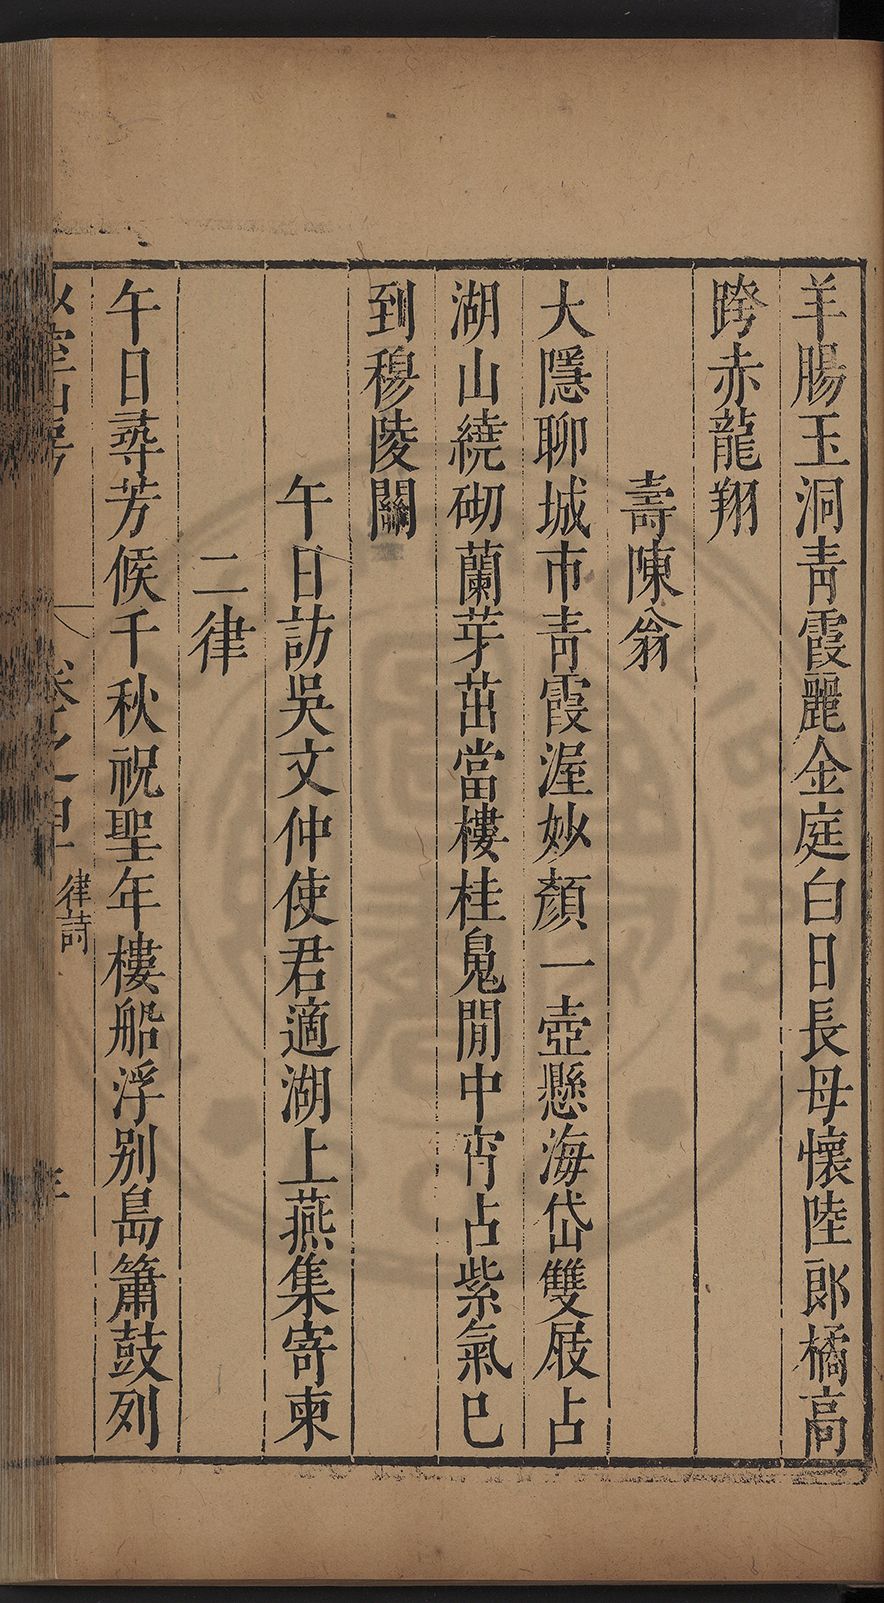 羊腸玉洞青霞麗金庭白日長母懷陸郎橘高
跨赤龍翔
壽陳翁
大隱聊城市青霞渥妙顏一壺懸海岱雙屐占
湖山繞砌蘭芽茁當樓桂鳬閒中宵占紫氣已
到穆陵關
午日訪吳文仲使君適湖上燕集寄柬
二律
午日尋芳候千秋祝聖年樓船浮別島簫鼓列
卷之四
律詩